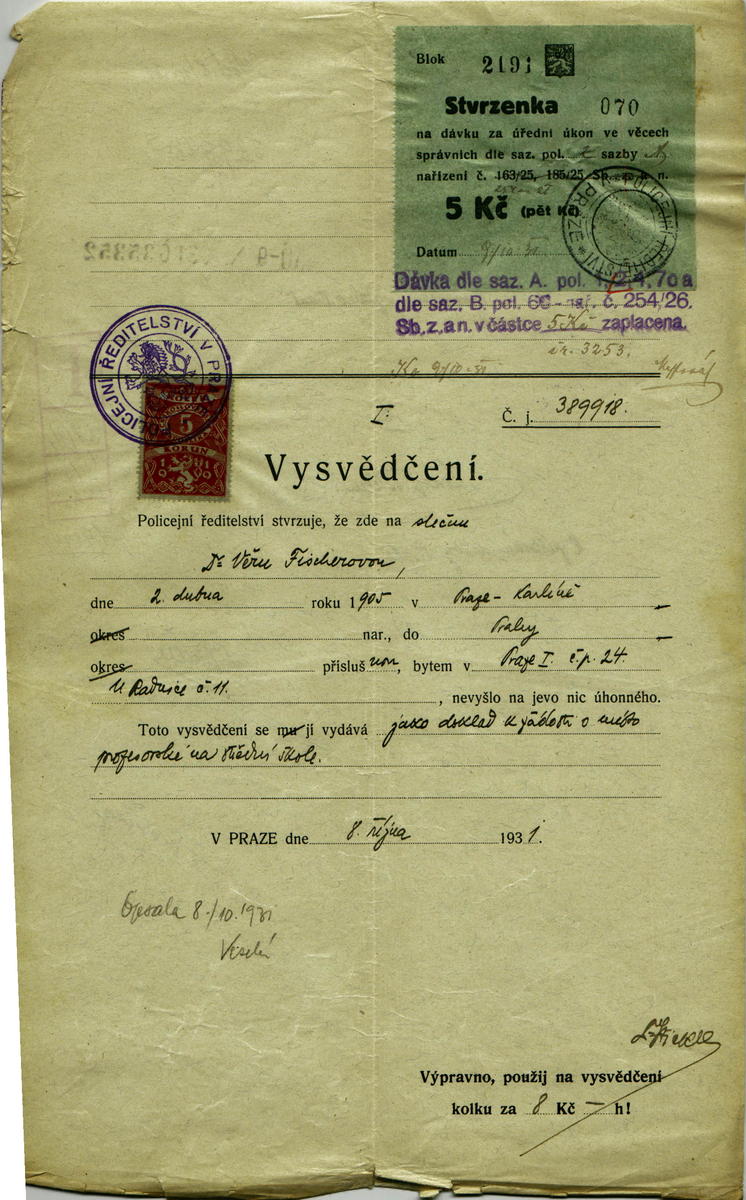 Blok 2191
Stvrzenka 070
na dávku za úřední úkon ve věcech
správních dle saz. pol. 2 sazby A
nařízení č. 163/25, 185/25 Sb. z. a n.
5 Kč (pět Kč)
Datum 9/10 31
POLICEJNÍ ŘEDITELSTVÍ V PRAZE *
Dávka dle saz. A. pol. 1, 2, 4, 7c a
dle saz. B. pol. 60 - nař. č. 254/26.
Sb. z. a n. v částce 5 Kč zaplacena.
čr. 3253.
9/10 31
POLICEJNÍ ŘEDITELSTVÍ V PR
5
KORUN
I.
Č. j. 389918.
Vysvědčení.
Policejní ředitelství stvrzuje, že zde na slečnu
Dr Věru Fischerovou,
dne 2. dubna roku 1905 v Praze-Karlíně
okres nar., do Prahy
okres příslušnou, bytem v Praze I. č.p. 24.
U Radnice č. 11. , nevyšlo na jevo nic úhonného.
Toto vysvědčení se mu jí vydává jako doklad k žádosti o místo
profesorské na střední škole.
V PRAZE dne 8. října 1931.
Opsala 8./10. 1931
Veselá
Výpravno, použij na vysvědčení
kolku za 8 Kč — h!